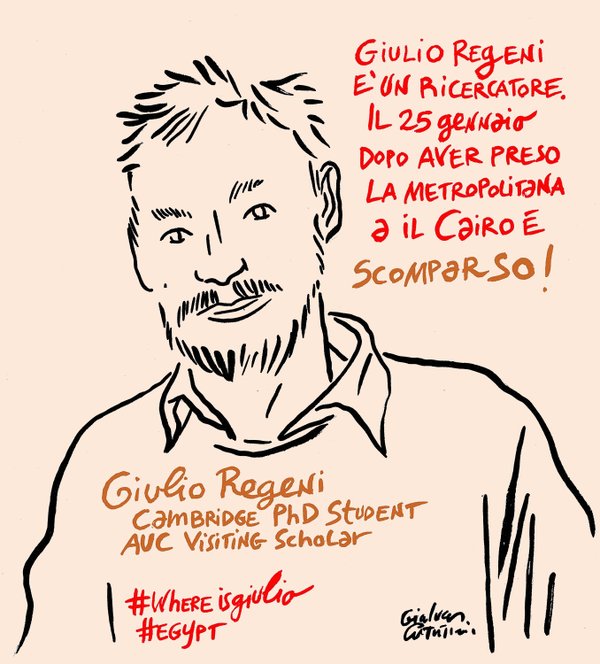 Giulio Regeni
E'UN RICERCATORE.
IL 25 gennaio
DOPO AVER PRESO
LA METROPOLITANA
a iL Cairo E
SCOMPARSO!
Giulio Regeni
CAMBRIDGE PhD STUDENT
AUC VISITING Scholar
#Where isgiulio
#EGYPT